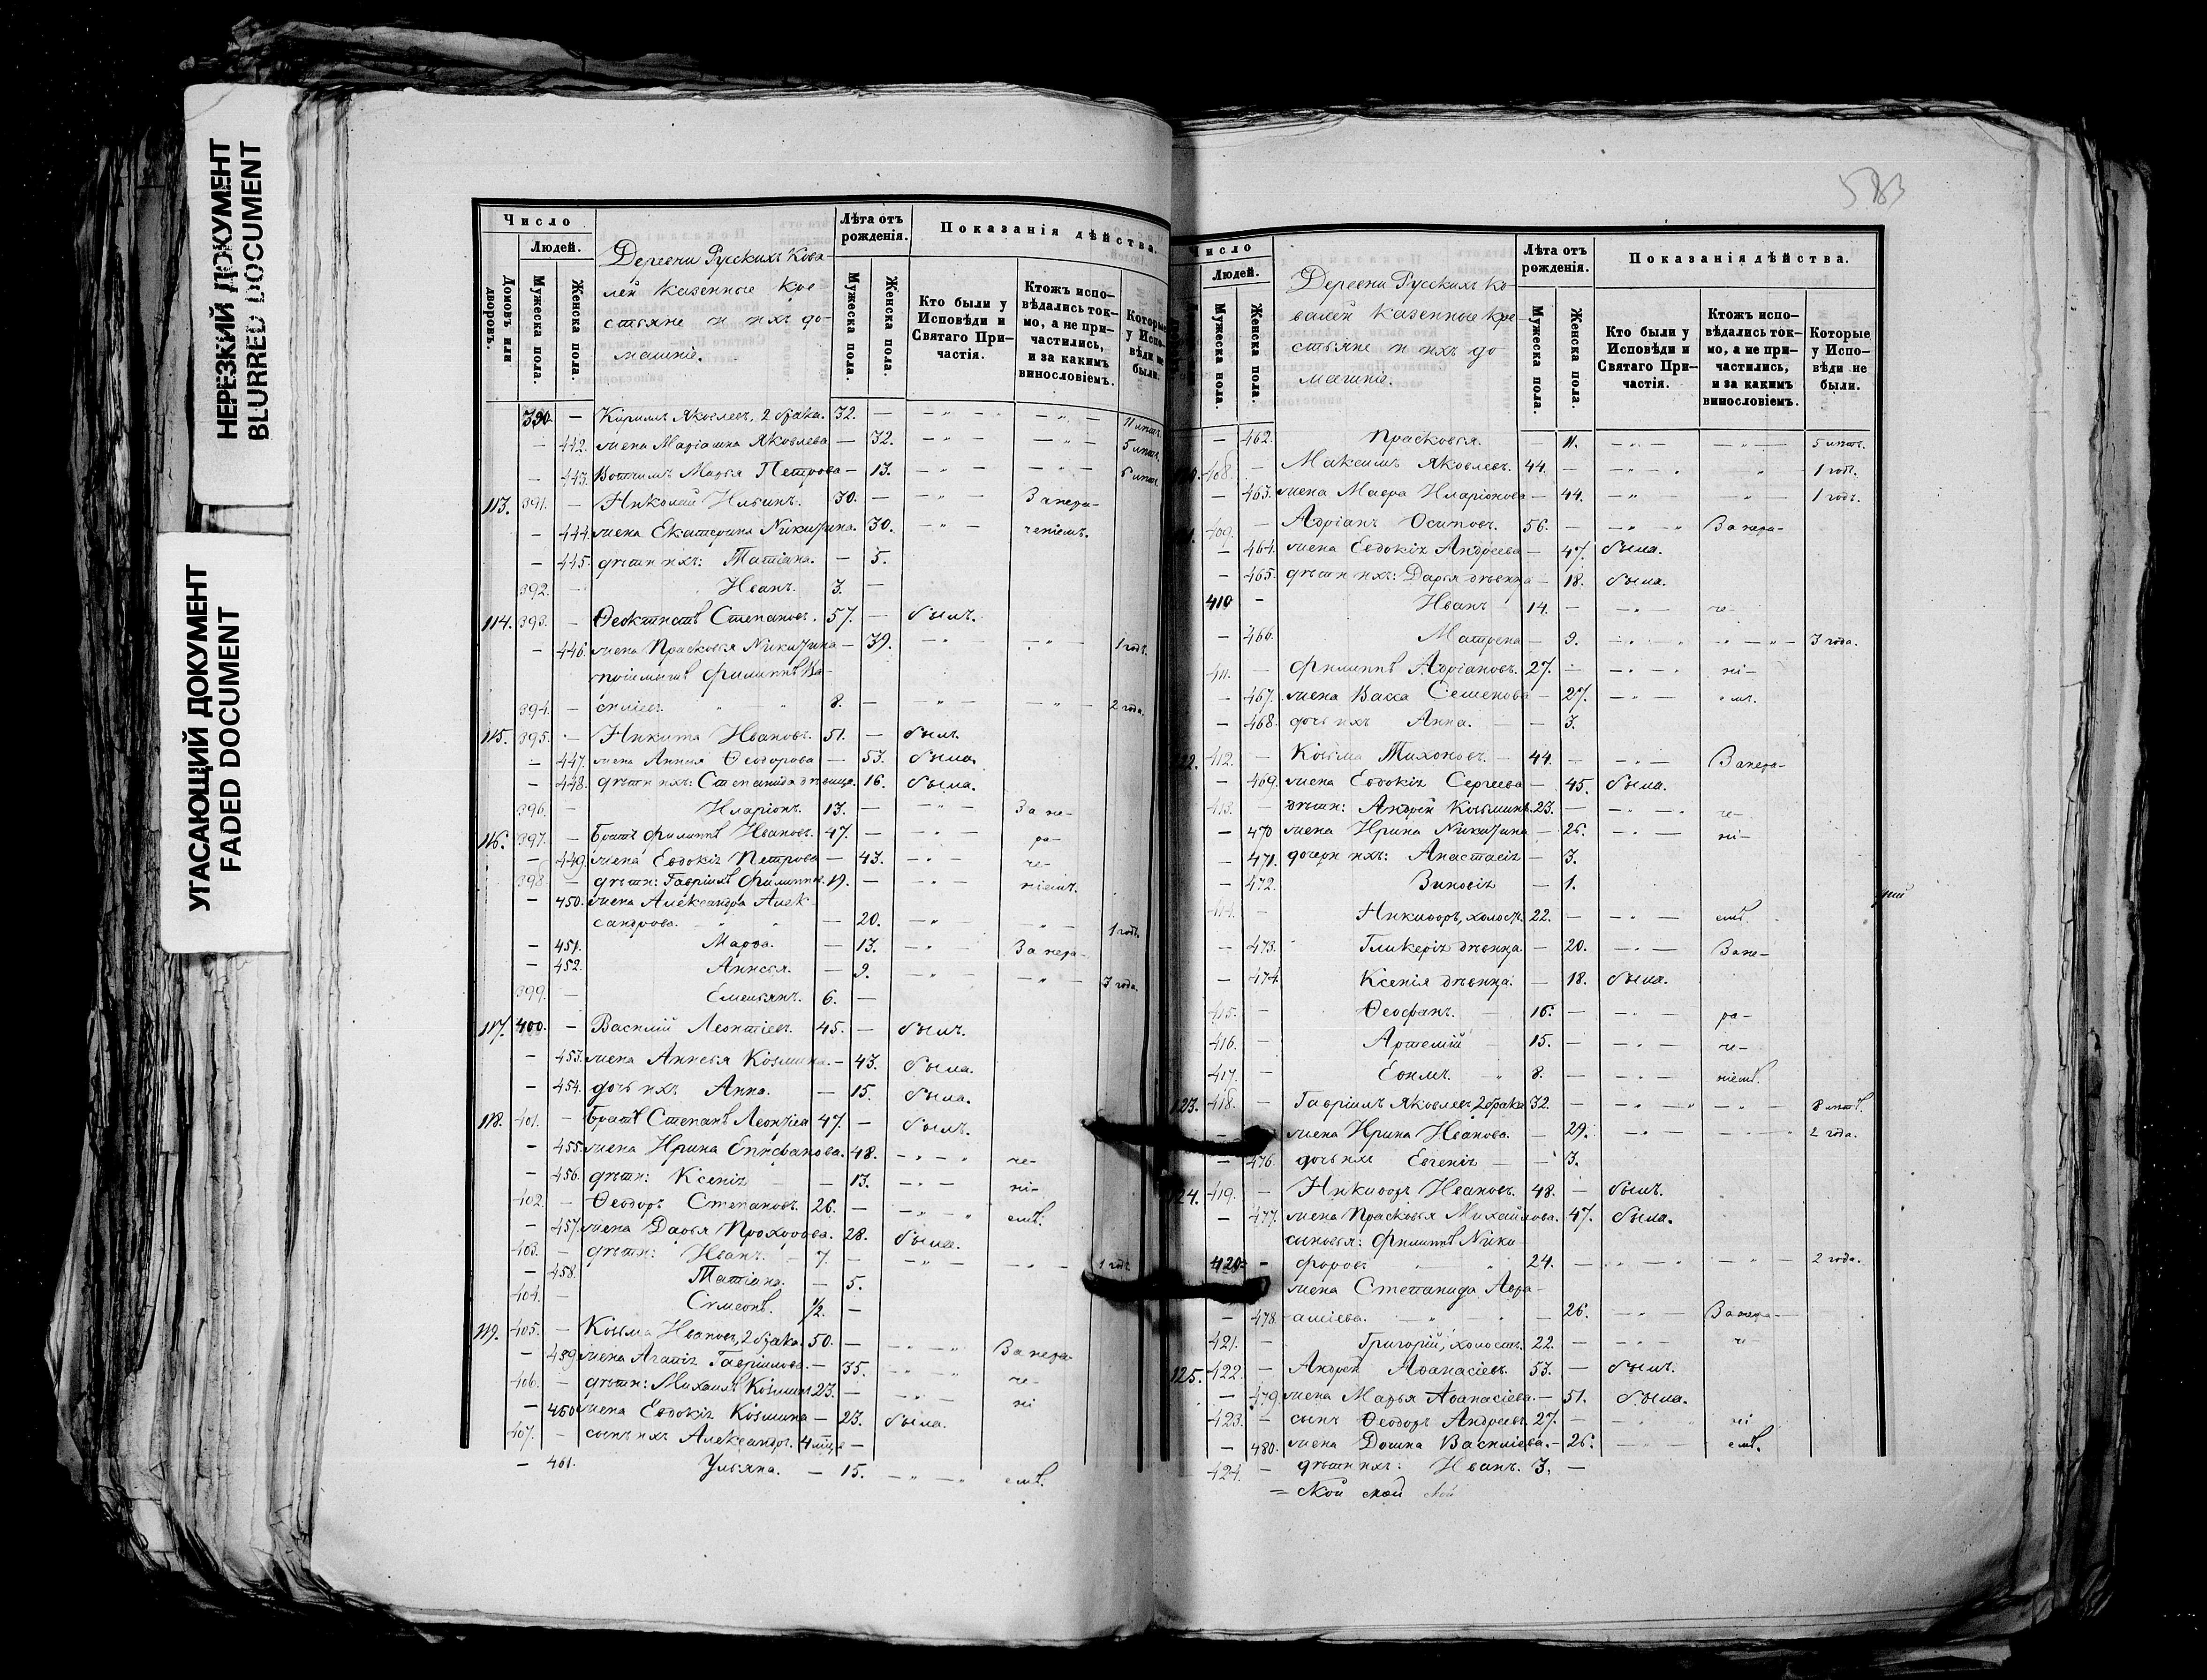 НЕРЕЗКИЙ ДОКУМЕНТ
BLURRED DOCUMENT
УГАСАЮЩИЙ ДОКУМЕНТ
FADED DOCUMENT
Число
Людей.
Домовъ или дворовъ.
Мужеска пола.
Женска пола.
Деревни Русскихъ Кова-
лей казенные Кре
стьяне и ихъ до-
машніе.
Лѣта отъ рожденія.
Мужеска пола.
Женска пола.
Показанія дѣйства.
Кто были у Исповѣди и Святаго При-частія.
Ктожъ испо-вѣдались ток-мо, а не при-частились, и за какимъ винословіемъ.
Которые у Испо-вѣди не были.
390. — Кирилъ Яковлевъ, 2 брака. 32. — 11 лѣтъ.
— 442. жена Маріамна Яковлева — 32. 5 лѣтъ.
— 443. Вотчимъ Марья Петрова — 13. 6 лѣтъ.
113. 391. — Николай Ильинъ. 30. — За нера-
— 444. жена Екатерина Никитина. 30. ченіемъ.
— 445. дѣти ихъ: Татіана. — 5.
392. — Иванъ. 3. —
114. 393. — Ѳеоктистъ Степановъ. 57. — былъ.
— 446. жена Прасковья Никитина — 39. 1 годъ.
Филиппъ Ва-
394. — силіевъ. 8. — 2 года.
115. 395. — Никита Ивановъ. 51. — былъ.
— 447. жена Анния Ѳеодорова — 53. была.
— 448. дѣти ихъ: Степанида дѣвица. 16. была.
396. — Иларіонъ. 13. — За не-
116. 397. — Братъ Филиппъ Ивановъ. 47. — ра-
— 449. жена Евдокія Петрова — 43. че-
398. — дѣти: Гавріилъ Филиппов. 19. — ніемъ.
— 450. жена Александра Алек-
сандрова. — 20. 1 годъ.
— 451. Марѳа. — 13. За нера-
— 452. Аннсья. — 9. 3 года.
399. — Емельянъ. 6. —
117. 400. — Василій Леонтіевъ. 45. — былъ.
— 453. жена Аннсья Козмина. — 43. была.
— 454. дочь ихъ Анна. — 15. была.
118. 401. — Братъ Степанъ Леонтіев 47. — былъ.
— 455. жена Ирина Епифанова. 48. че-
— 456. дѣти: Ксенія — 13. ні-
402. — Ѳеодоръ Степановъ. 26. — емъ.
— 457. жена Дарья Прохорова. 28. была.
403. — дѣти: Иванъ. 7. — 1 годъ
— 458. Татіана. — 5.
404. — Сумеонъ. 1/2. —
119. 405. — Козьма Ивановъ, 2 брака. 50. — За нера-
— 459. жена Агапія Гавріилова. — 35. че-
406. — дѣти: Михаилъ Козьминъ 23. — ні
— 460 жена Евдокія Козмина — 23. была.
407. — сынъ ихъ Александръ. 4 мѣс. —
— 461. Ульяна. — 15. емъ.
583
Число
Людей.
Мужеска пола.
Женска пола.
Деревни Русскихъ Ко-
валей казенные Кре
стьяне и ихъ до
машніе.
Лѣта отъ рожденія.
Мужеска пола.
Женска пола.
Показанія дѣйства.
Кто были у Исповѣди и Святаго При-частія.
Ктожъ испо-вѣдались ток-мо, а не при-частились, и за какимъ винословіемъ.
Которые у Испо-вѣди не были.
— 462. Прасковья. — 11. 5 лѣтъ.
408. — Максимъ Яковлевъ. 44. — 1 годъ.
— 463. жена Мавра Иларіонова — 44. 1 годъ.
409. — Адріанъ Осиповъ. 56. — За нера-
— 464. жена Евдокія Андреева — 47. была.
— 465. дѣти ихъ: Дарья дѣвица — 18. была.
410 — Иванъ 14. — че-
— 466. Матрена — 9. 3 года.
411. — Филиппъ Адріановъ. 27. — ні-
— 467. жена Васса Семенова — 27. емъ.
— 468. дочь ихъ Анна. — 3.
122. 412. — Козьма Тихоновъ. 44. — За нера-
— 469. жена Евдокія Сергеева — 45. была.
413. — дѣти: Андрей Козьминъ. 23. — че-
— 470 жена Ирина Никитина — 26. ні-
— 471. дочери ихъ: Анастасія — 3.
— 472. Зиновія — 1.
414. — Никифоръ, холостъ. 22. — емъ.
— 473. Гликерія дѣвица — 20. За не-
— 474 Ксенія дѣвица. — 18. была.
415. — Ѳеофанъ. 16. — ра-
416. — Артемій 15. — че-
417. — Еѳимъ. 8. — ніемъ.
123. 418. — Гавріилъ Яковлевъ 2 брака 32. — 8 лѣтъ.
жена Ирина Иванова. — 29. 2 года.
— 476. дочь ихъ Евгенія — 3.
124. 419. — Никифоръ Ивановъ. 48. — былъ.
— 477. жена Прасковья Михайлова. 47. была.
сыновья: Филиппъ Ники-
420. — форовъ 24. — 2 года.
жена Степанида Авра-
— 478 -аміева. 26. За нера-
421. — Григорій, холостъ. 22. — че-
125. 422. — Андрей Аѳанасіевъ. 53. — былъ.
— 479. жена Марья Аѳанасіева. — 51. была.
423. — сынъ Ѳеодоръ Андреевъ. 27. — ні
— 480. жена Домна Василіева. — 26. емъ.
424. — дѣти ихъ: Иванъ. 3. —